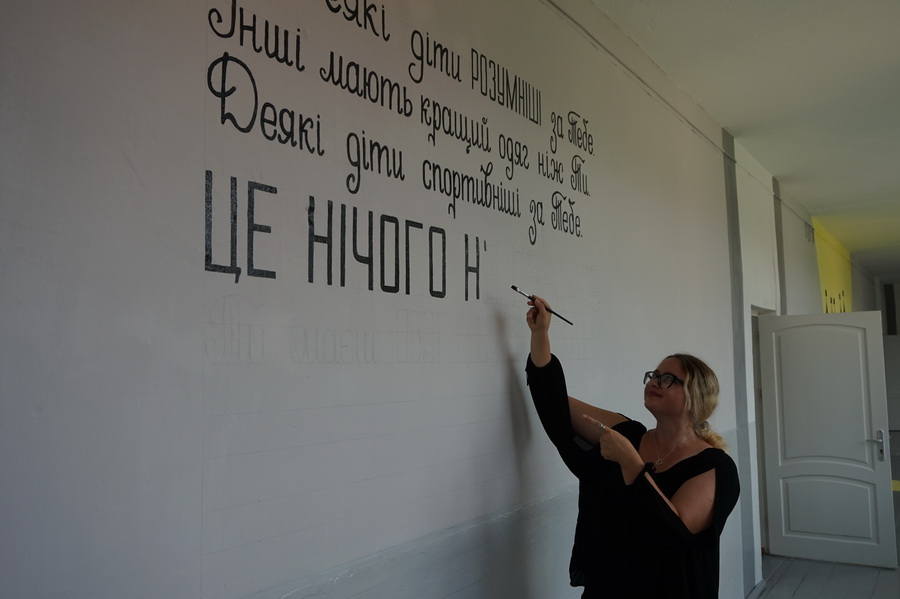 еякі діти РОЗУМНІШІ за Тебе.
Інші мають кращий одяг ніж Ти.
Деякі діти спортивніші за Тебе.
ЦЕ НІЧОГО Н